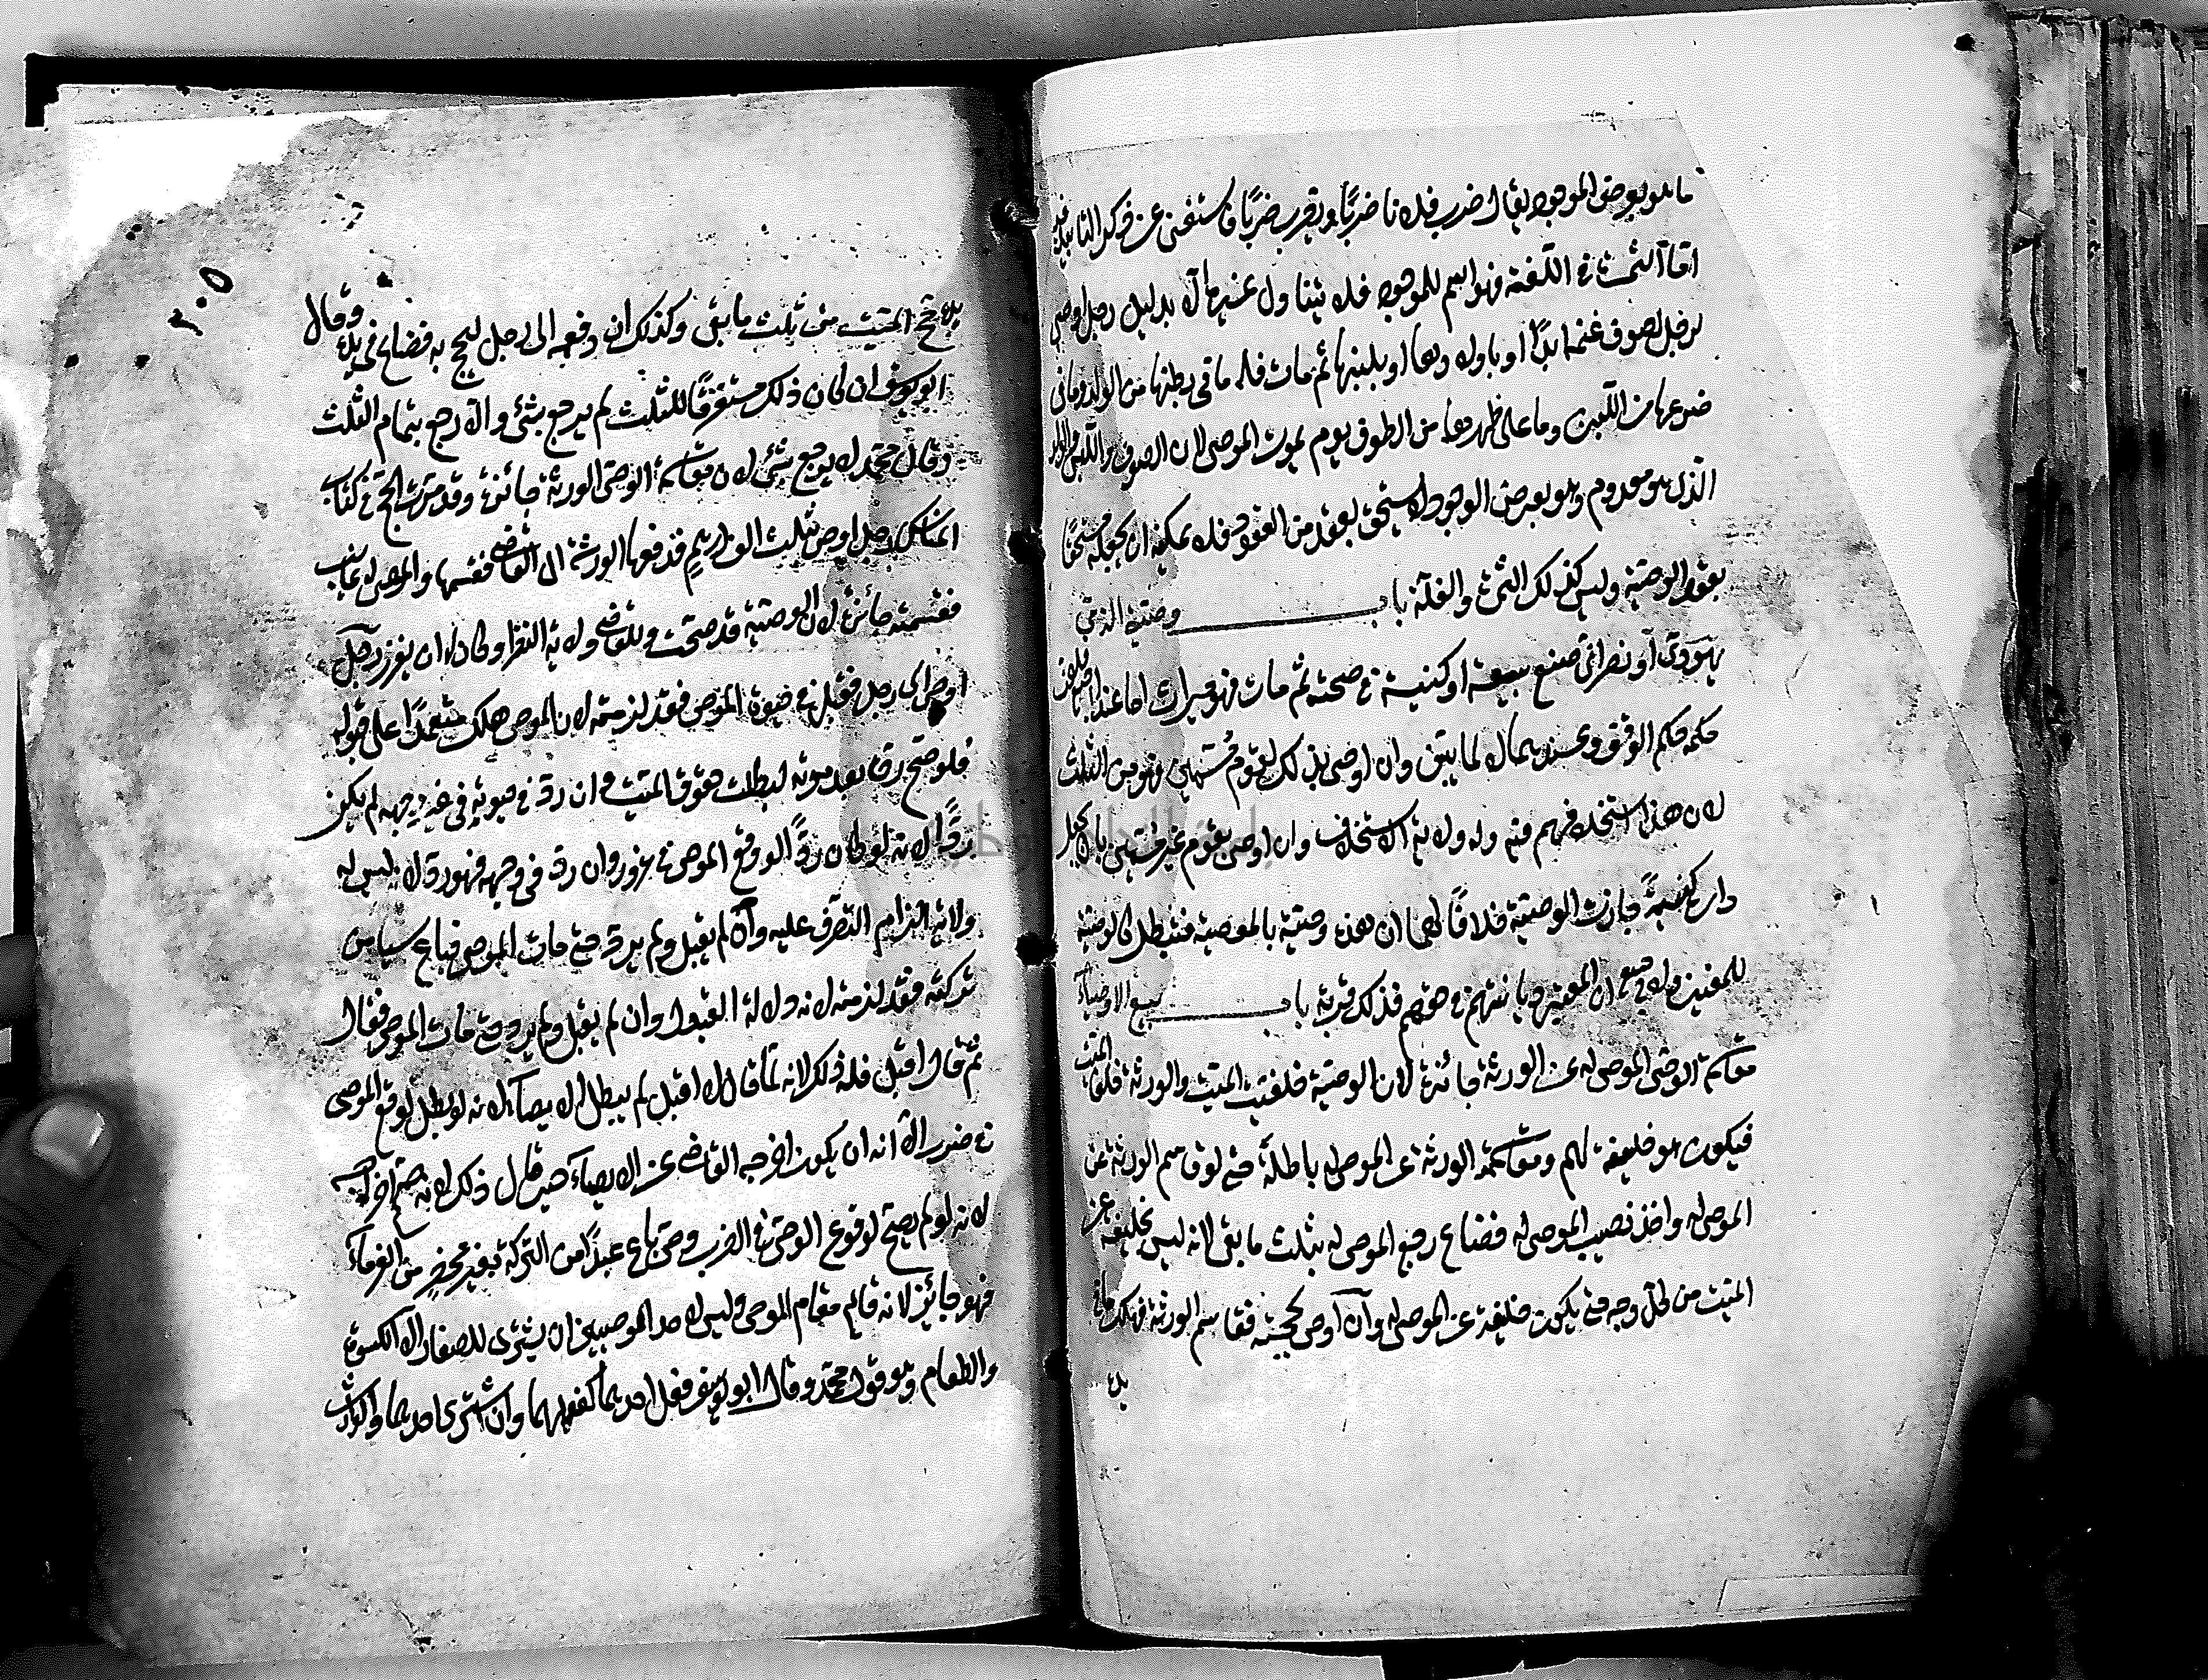 ما هو بعرض الموجود يقال اضرب فلانا ضربًا ويضرب ضربًا فاستغنى عن ذكر التابيد فيه
اما الثمرة في اللغة فهو اسم للموجود فلا يتناول غيرها الا بدليل رجل اوصى
لرجل بصوف غنمه ابدًا او باولادها او بلبنها ثم مات فله ما في بطنها من الولد وما في
ضروعها من اللبن وما على ظهرها من الصوف يوم يموت الموصى لان الصوف واللبن والولد
الذى هو معدوم وهو بعرض الوجود لا يستحق بعقد من العقود فلا يمكنه ان يجعله مستحقا
بعقد الوصية وليس كذلك الثمرة والغلة باب وصية الذمى
يهودى او نصرانى صنع بيعة او كنيسة في صحته ثم مات فهو ميراث اما عند ابى حنيفة فلان
حكمه حكم الوقف وعندهما لما يبين وان اوصى بذلك لقوم مسمين فهو من الثلث
لان هذا استخلافهم فيه وله ولاية الاستخلاف وان اوصى لقوم غير مسمين بان يجعل
داره كنيسة جازت الوصية خلافًا لهما ان هذه وصية بالمعصية فتبطل كالوصية
للمغنيين وله ان المعتبر ديانتهم في حقهم فذلك قربة باب بيع الاوصياء
مقاسمة الوصى الموصى له عن الورثة جائزة لان الوصية خلفت الميت والورثة خلفاء الميت
فيكون هو خليفة لهم ومقاسمة الورثة عن الموصى له باطلة حتى لو قاسم الورثة عن
الموصى له واخذ نصيب الموصى له فضاع رجع الموصى له بثلث ما بقى لانه ليس بخليفة عن
الميت من كل وجه حتى يكون خليفة عن الموصى له وان اوصى بحجة فقاسم الورثة فهلك ما في
يده
٣٠٥
يده حج الميت من ثلث ما بقى وكذلك ان دفعه الى رجل ليحج به فضاع في يده وقال
ابو يوسف ان كان ذلك مستغرقًا للثلث لم يرجع بشئ والا رجع بتمام الثلث
وقال محمد لا يرجع بشئ لان مقاسمة الوصى الورثة جائزة وقد مرت الحج في كتاب
المناسك رجل اوصى بثلث الف درهم فدفعها الورثة الى القاضى فقسمها والموصى له غائب
فقسمته جائزة لان الوصية قد صحت وللقاضى ولاية النظر وكان له ان يفرز رجل
اوصى الى رجل فقبل في حيوة الموصى فقد لزمته لان الموصى هلك معتمدًا على قبوله
فلو صح رده بعد موته لبطلت حقوق الميت وان رد في حيوته في غير وجهه لم يكن
ردًا لانه لو كان ردًا لوقع الموصى في غرور وان رد في وجهه فهو رد لان ليس له
ولاية الزام التصرف عليه وان لم يقبل ولم يرد حتى مات الموصى فباع شيا من
تركته فقد لزمته لانه دلالة القبول وان لم يقبل ولم يرد حتى مات الموصى فقال لا اقبل
ثم قال اقبل فله ذلك لانه لما قال لا اقبل لم يبطل الايصاء لانه لو بطل لوقع الموصى
في ضرر الا انه ان يكون اخرجه القاضى عن الايصاء حين قال ذلك
لانه لو لم يصح لوقوع الوصى في الضرر وصى باع عبدًا من التركة بغير محضر من الغرماء
فهو جائز لانه قائم مقام الموصى وليس لاحد الوصيين ان يشترى للصغار الا الكسوة
والطعام وهو قول محمد وقال ابو يوسف فعل احدهما كفعلهما وان اشترى احدهما والوارث